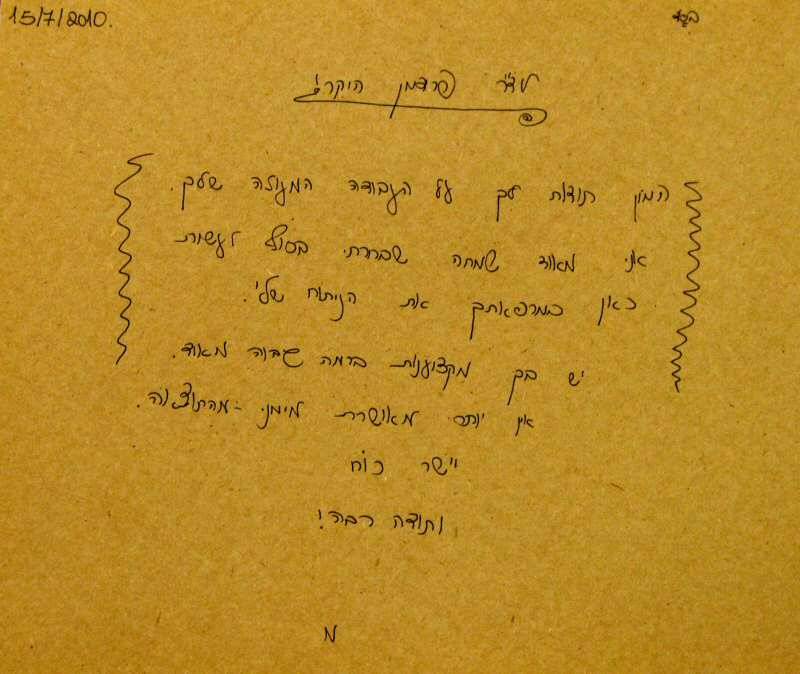 15/7/2010.
בס"ד
לד"ר פרדמן היקר!
המון תודות לך על העבודה המעולה שלך.
אני מאוד שמחה שבררתי בסוף לעשות
כאן במרפאתך את הניתוח שלי.
יש בך מקצוענות ברמה גבוה מאוד.
אין יותר מאושרת מימני - מהתוצאה.
יישר כוח
ותודה רבה!
מ